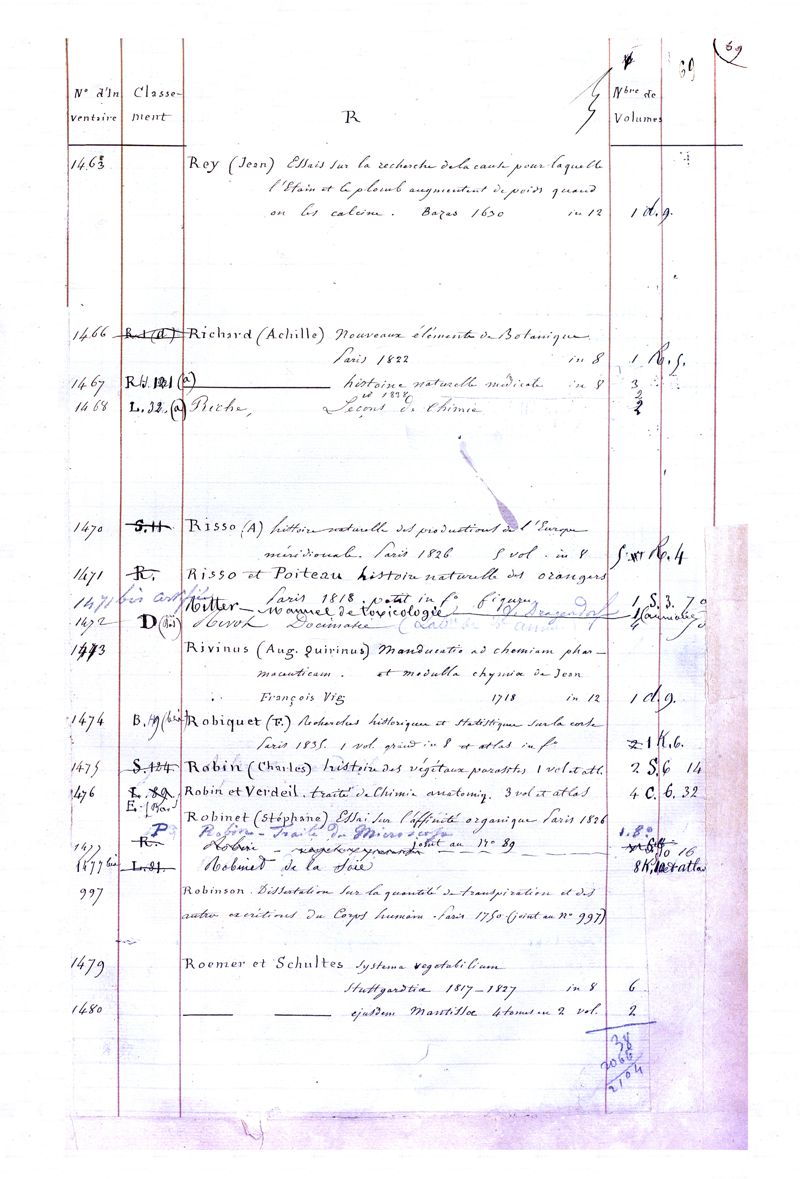 69
69
N° d'In
ventaire
Classe-
ment
R
Nbre de
Volumes
1463 Rey (Jean) Essais sur la recherche de la cause pour laquelle
l'Etain et le plomb augmentent de poids quand
on les calcine. Bazas 1630 in 12 1 d. 9.
1466 R.1(d) Richard (Achille) Nouveaux éléments de Botanique
Paris 1822 in 8 1 R. 5.
1467 (a) histoire naturelle médicale in 8 3
1468 L. 32. (a) Riche, Leçons de Chimie 2
1470 S. 11 Risso (A) histoire naturelle des productions de l'Europe
méridionale. Paris 1826 5 vol. in 8 5 R. 4
1471 R. Risso et Poiteau histoire naturelle des orangers
Paris 1818. petit in f° figures 1 S. 3. 70
1471 bis Ritter Manuel de toxicologie Dragendorf 1
1472 D (bis) Rivot Docimasie 4
1473 Rivinus (Aug. Quirinus) Manducatio ad chemiam phar-
maceuticam. et medulla chymiæ de Jean
François Vig 1718 in 12 1 d. 9.
1474 B. 49 (bis) Robiquet (F.) Recherches historiques et statistiques sur la corse
Paris 1835. 1 vol. grand in 8 et atlas in f° 2 1 K. 6.
1475 S. 124 Robin (Charles) histoire des végétaux parasites 1 vol et atl. 2 S. 6 14
1476 L. 89 Robin et Verdeil. traité de Chimie anatomiq. 3 vol et atlas 4 C. 6. 32
E. (Bis)
Robinet (Stéphane) Essai sur l'affinité organique Paris 1826
P Robin - Traité du Microscope 1. 8°
1477 R. joint au N° 89 16
1477 bis L. 81. Robinet de la Soie 8 et atlas
997 Robinson. Dissertation sur la quantité de transpiration et des
autres excrétions du Corps humain. Paris 1750 (joint au N° 997)
1479 Roemer et Schultes Systema vegetabilium
Stuttgardtiæ 1817-1827 in 8 6
1480 ejusdem Mantissæ 4 tomes en 2 vol. 2
38
2066
2104